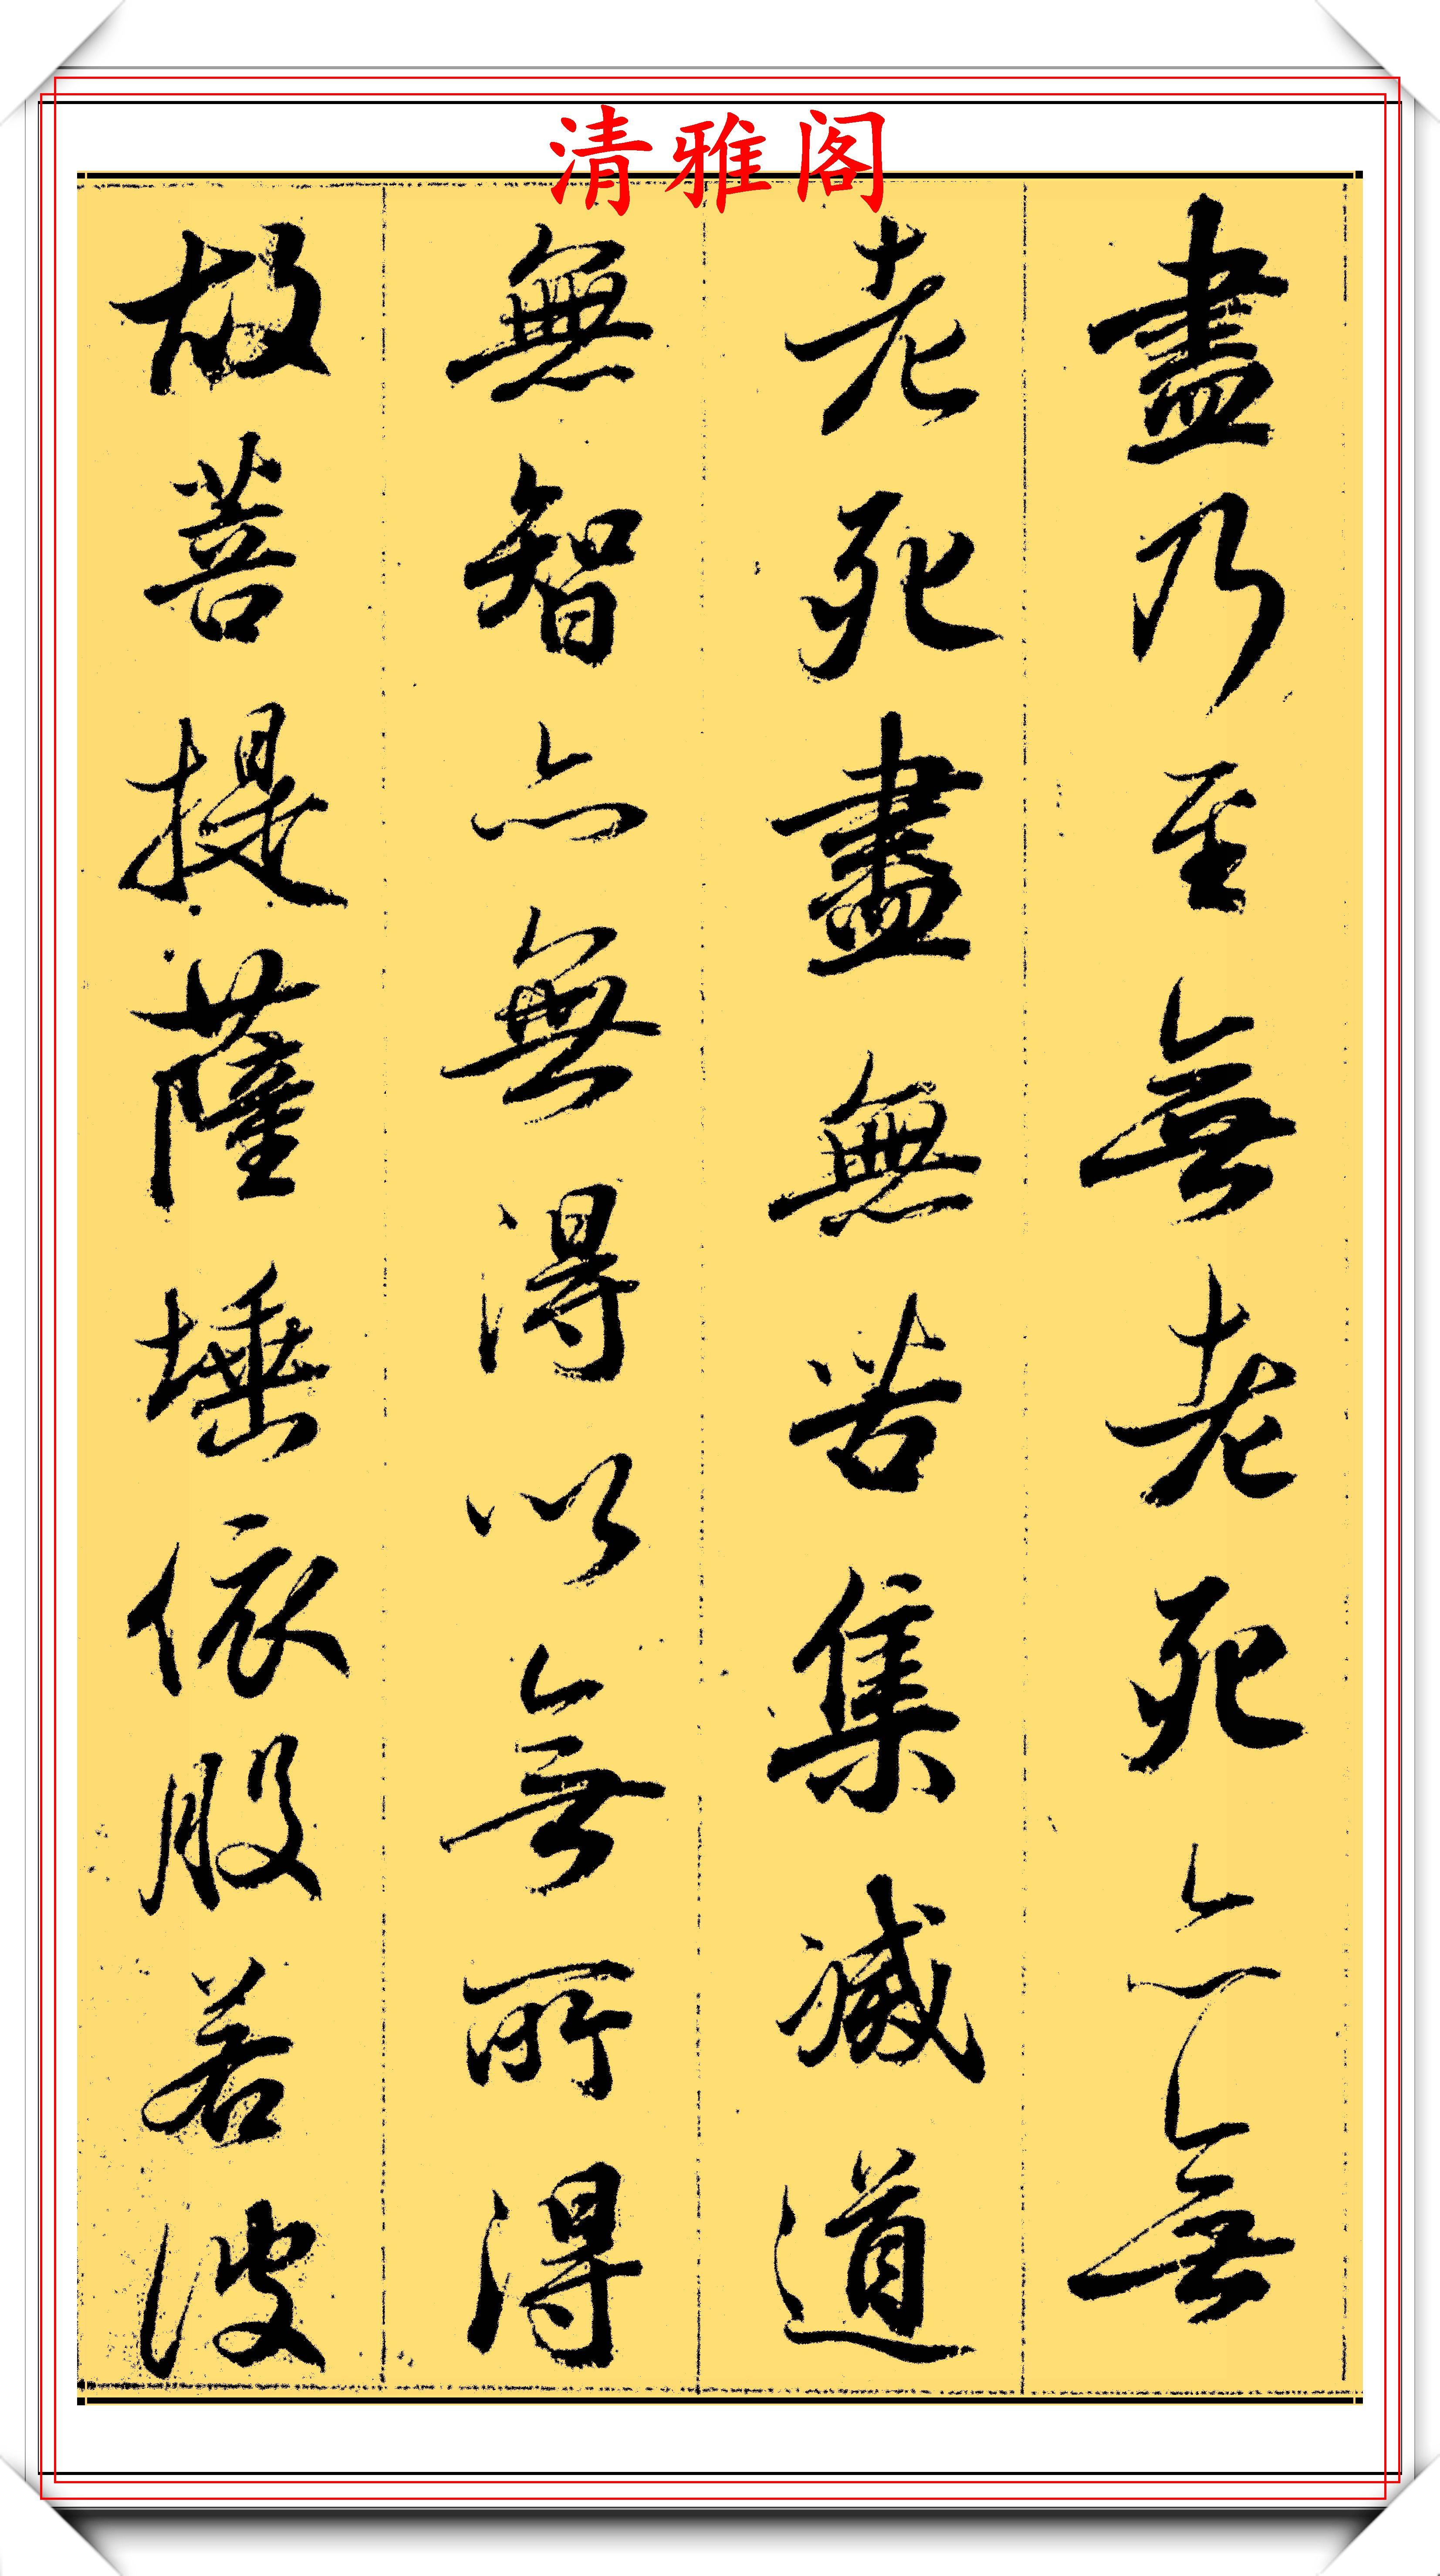 清雅阁
盡乃至無老死亦無
老死盡無苦集滅道
無智亦無得以無所得
故菩提薩埵依般若波